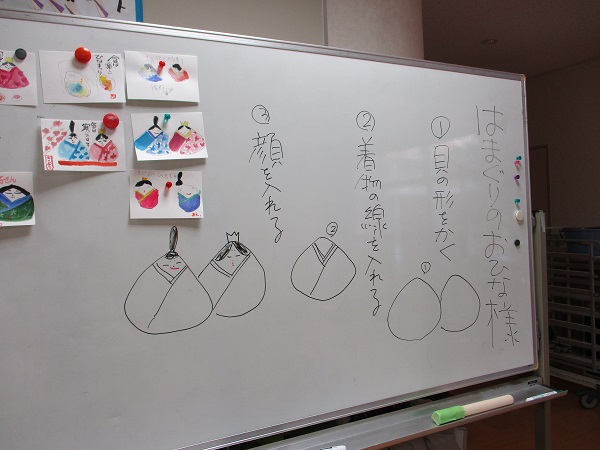 はまぐりのおひな様
①貝の形をかく
①
②着物の線を入れる
②
③顔を入れる